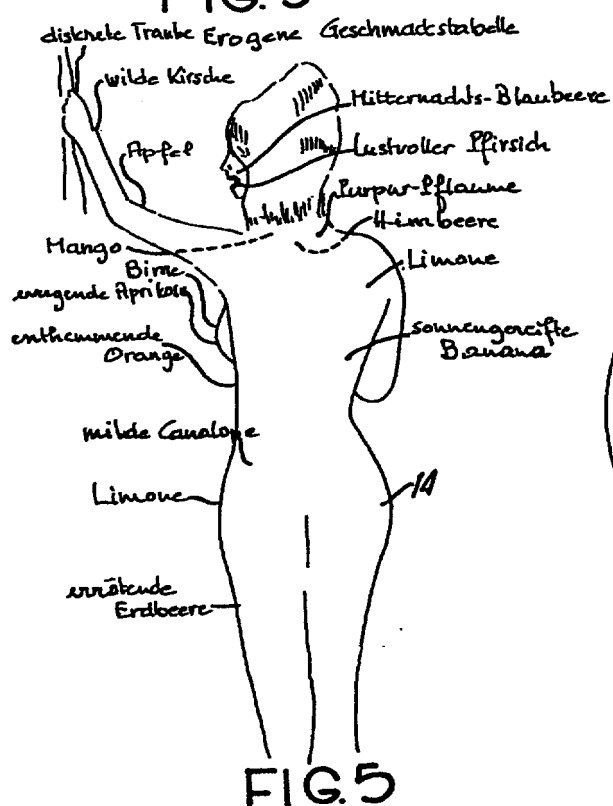 FIG. 3
diskrete Traube Erogene Geschmackstabelle
wilde Kirsche
Mitternachts-Blaubeere
Apfel
Lustvoller Pfirsich
Purpur-Pflaume
Himbeere
Mango
Limone
Birne
erregende Aprikose
enthemmende
Orange
sonnengereifte
Banana
milde Canalope
Limone
14
errötende
Erdbeere
FIG.5